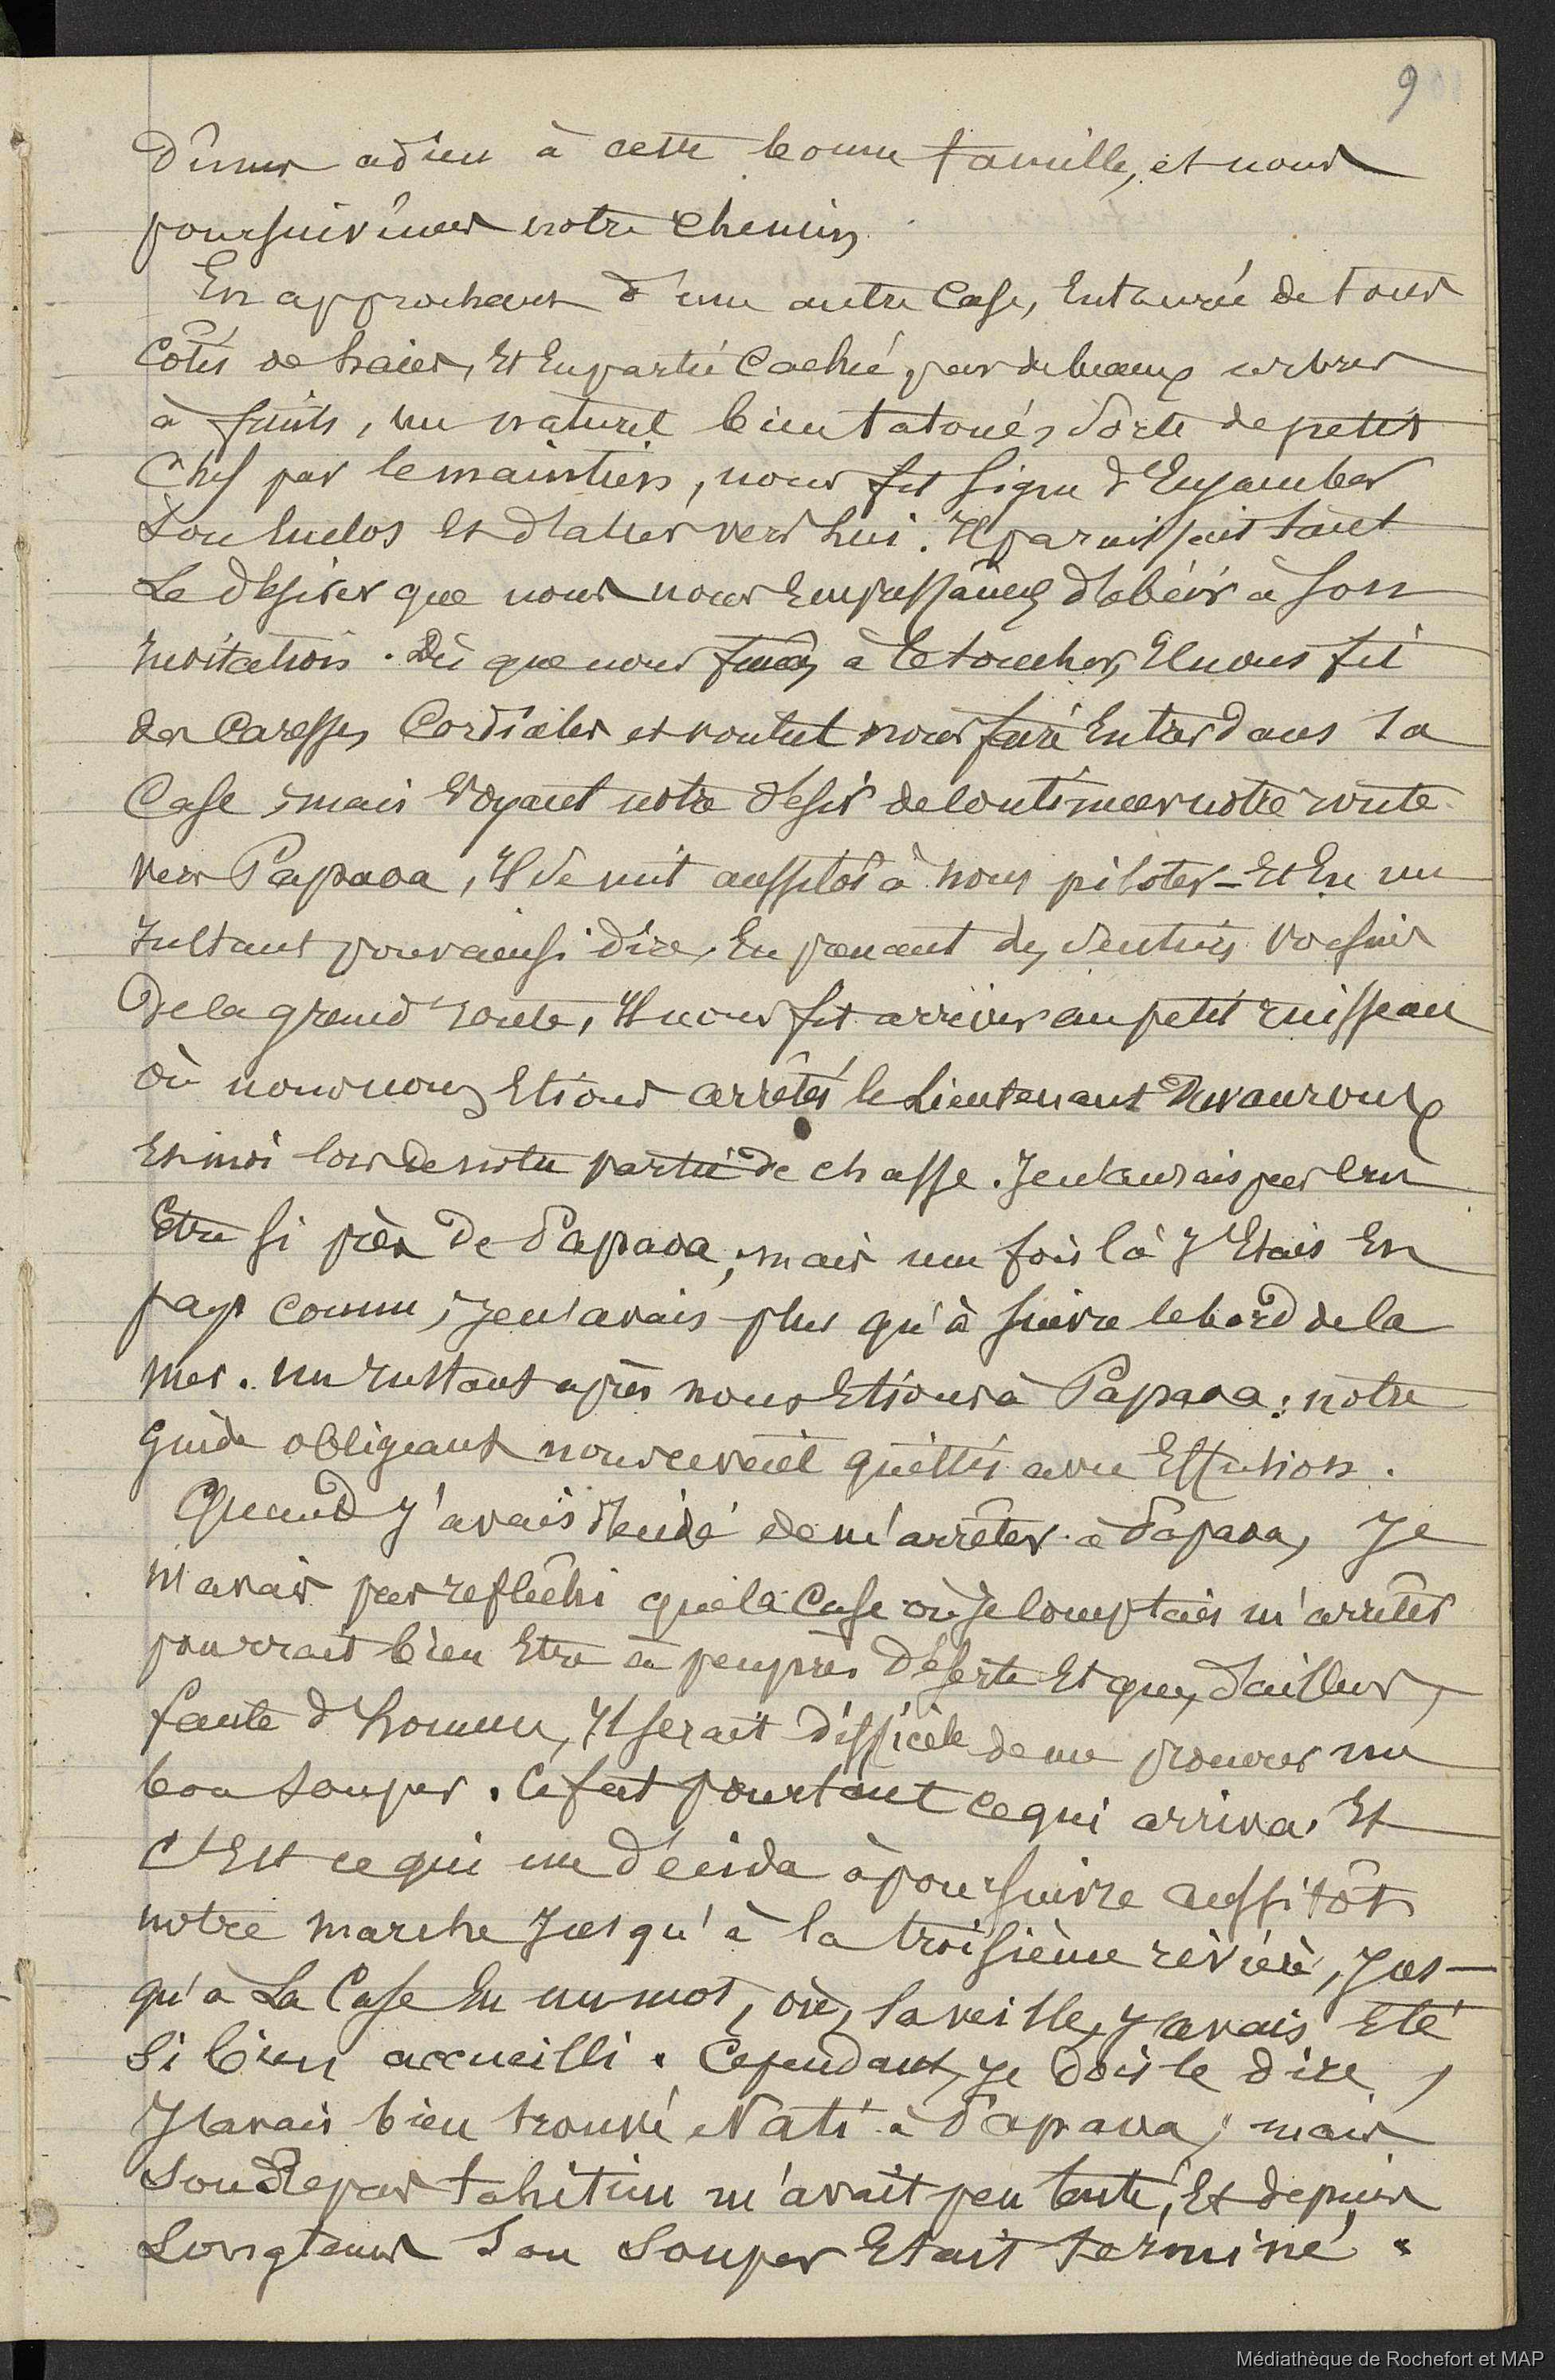 9
Dîmes adieu à cette bonne famille, et nous
poursuivîmes notre Chemin
En approchant d'une autre Case, Entourée de tous
Côtés de haies, Et En partie Cachée, par de beaux arbres
à fruits, un naturel bien tatoué, Sorte de petit
Chef par le maintien, nous fit signe d'Enjamber
Son Enclos Et d'aller vers Lui. Il paraissait tant
Le désirer que nous nous Empressâmes d'obéir à Son
Invitation. Dès que nous fumes à le toucher, Il nous fit
des Caresses Cordiales et voulut nous faire Entrer dans sa
Case, mais Voyant notre désir de Continuer notre route
vers Papaoa, Il se mit aussitôt à nous piloter - Et En un
Instant pour ainsi dire, En prenant des Sentiers voisins
De la grand route, Il nous fit arriver au petit ruisseau
où nous nous Etions arrêtés le Lieutenant
Et moi lors de notre partie de chasse. Je n'aurais pas cru
Etre si près De Papaoa, mais une fois là J'Etais En
pays connu, Je n'avais plus qu'à suivre le bord de la
mer. un Instant après nous Etions à Papaoa; notre
Guide obligeant nous avait quittés avec Effusion.
Quand J'avais décidé de m'arrêter à Papaoa, Je
n'avais pas reflêchi que la Case où Je Comptais m'arrêter
pourrait bien Etre à peuprès Déserte Et que, d'ailleurs,
faute d'homme, Il serait difficile de me procurer un
bon Souper. Ce fut pourtant ce qui arriva. Et
C'Est ce qui me décida à poursuivre aussitôt
notre marche Jusqu'à la troisième rivière, Jus-
qu'à La Case En un mot, où, la veille, J'avais Eté
Si bien accueilli. Cependant, Je dois le dire,
J'avais bien trouvé Nati à Papaoa, mais
Son Repas tahitien m'avait peu tenté, Et depuis
Longtems Son Souper Etait terminé.
Médiathèque de Rochefort et MAP